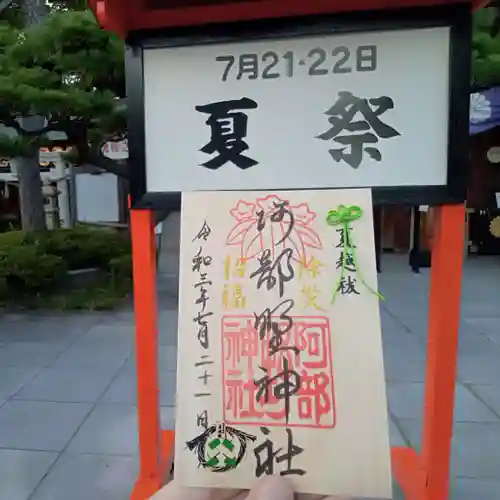 7月21・22日
夏祭
夏越祓
阿部野神社
招福
除災
阿部野神社
令和三年七月二十一日